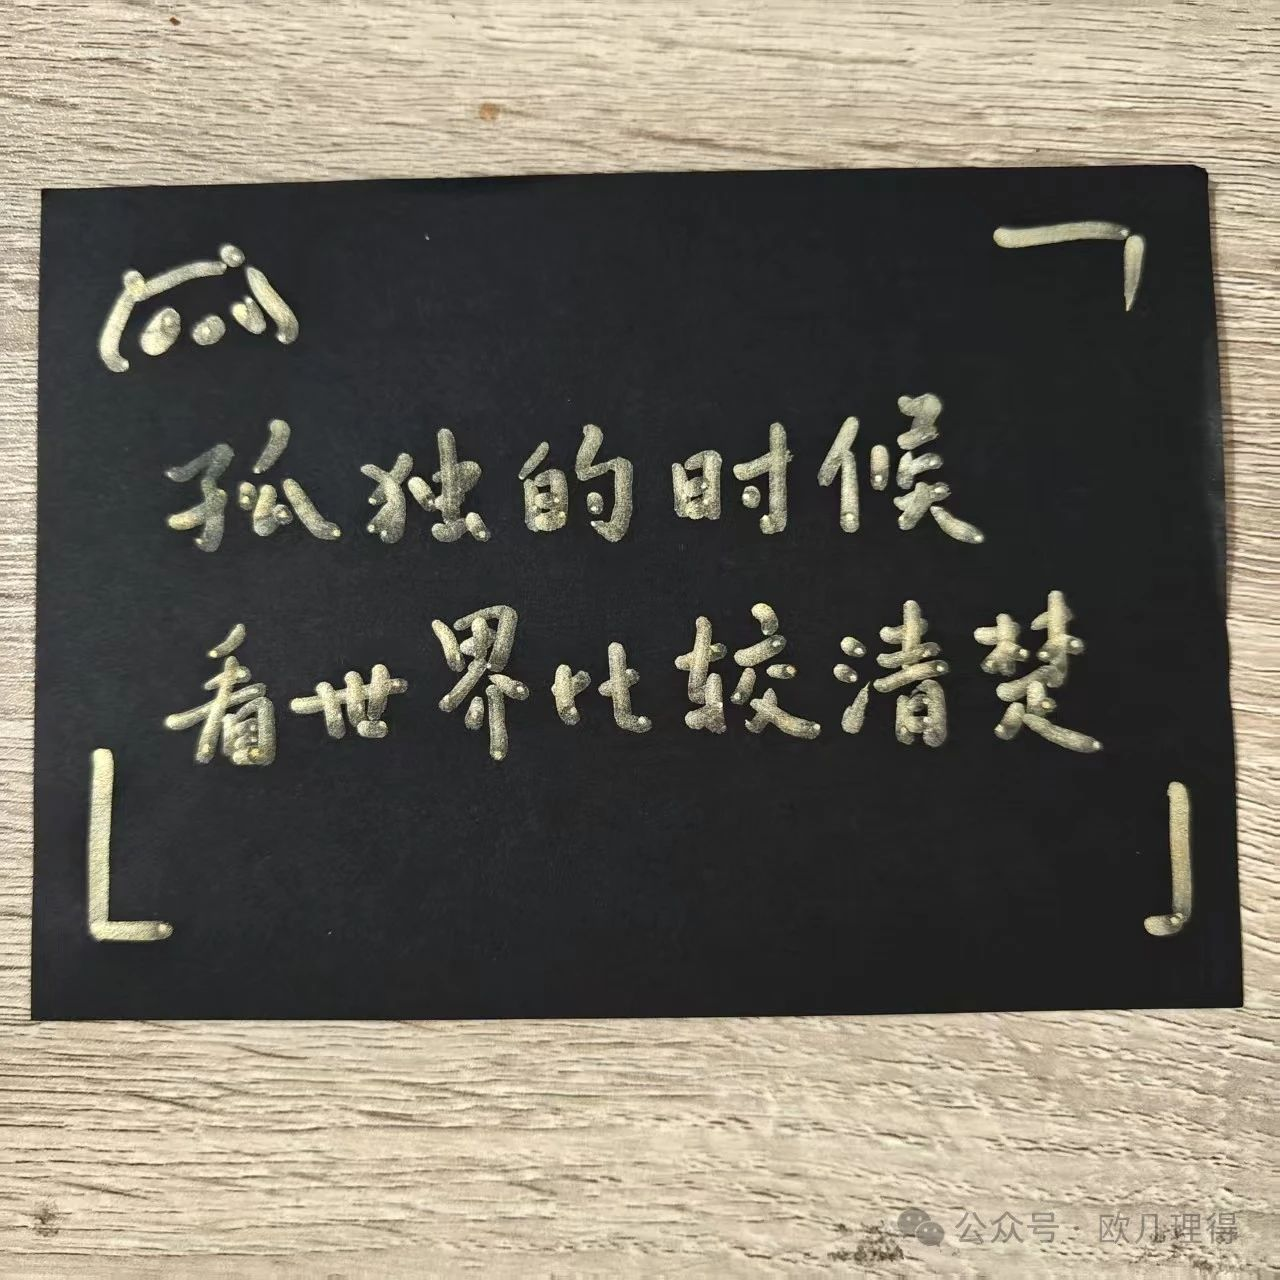 孤独的时候
看世界比较清楚
公众号 · 欧几理得